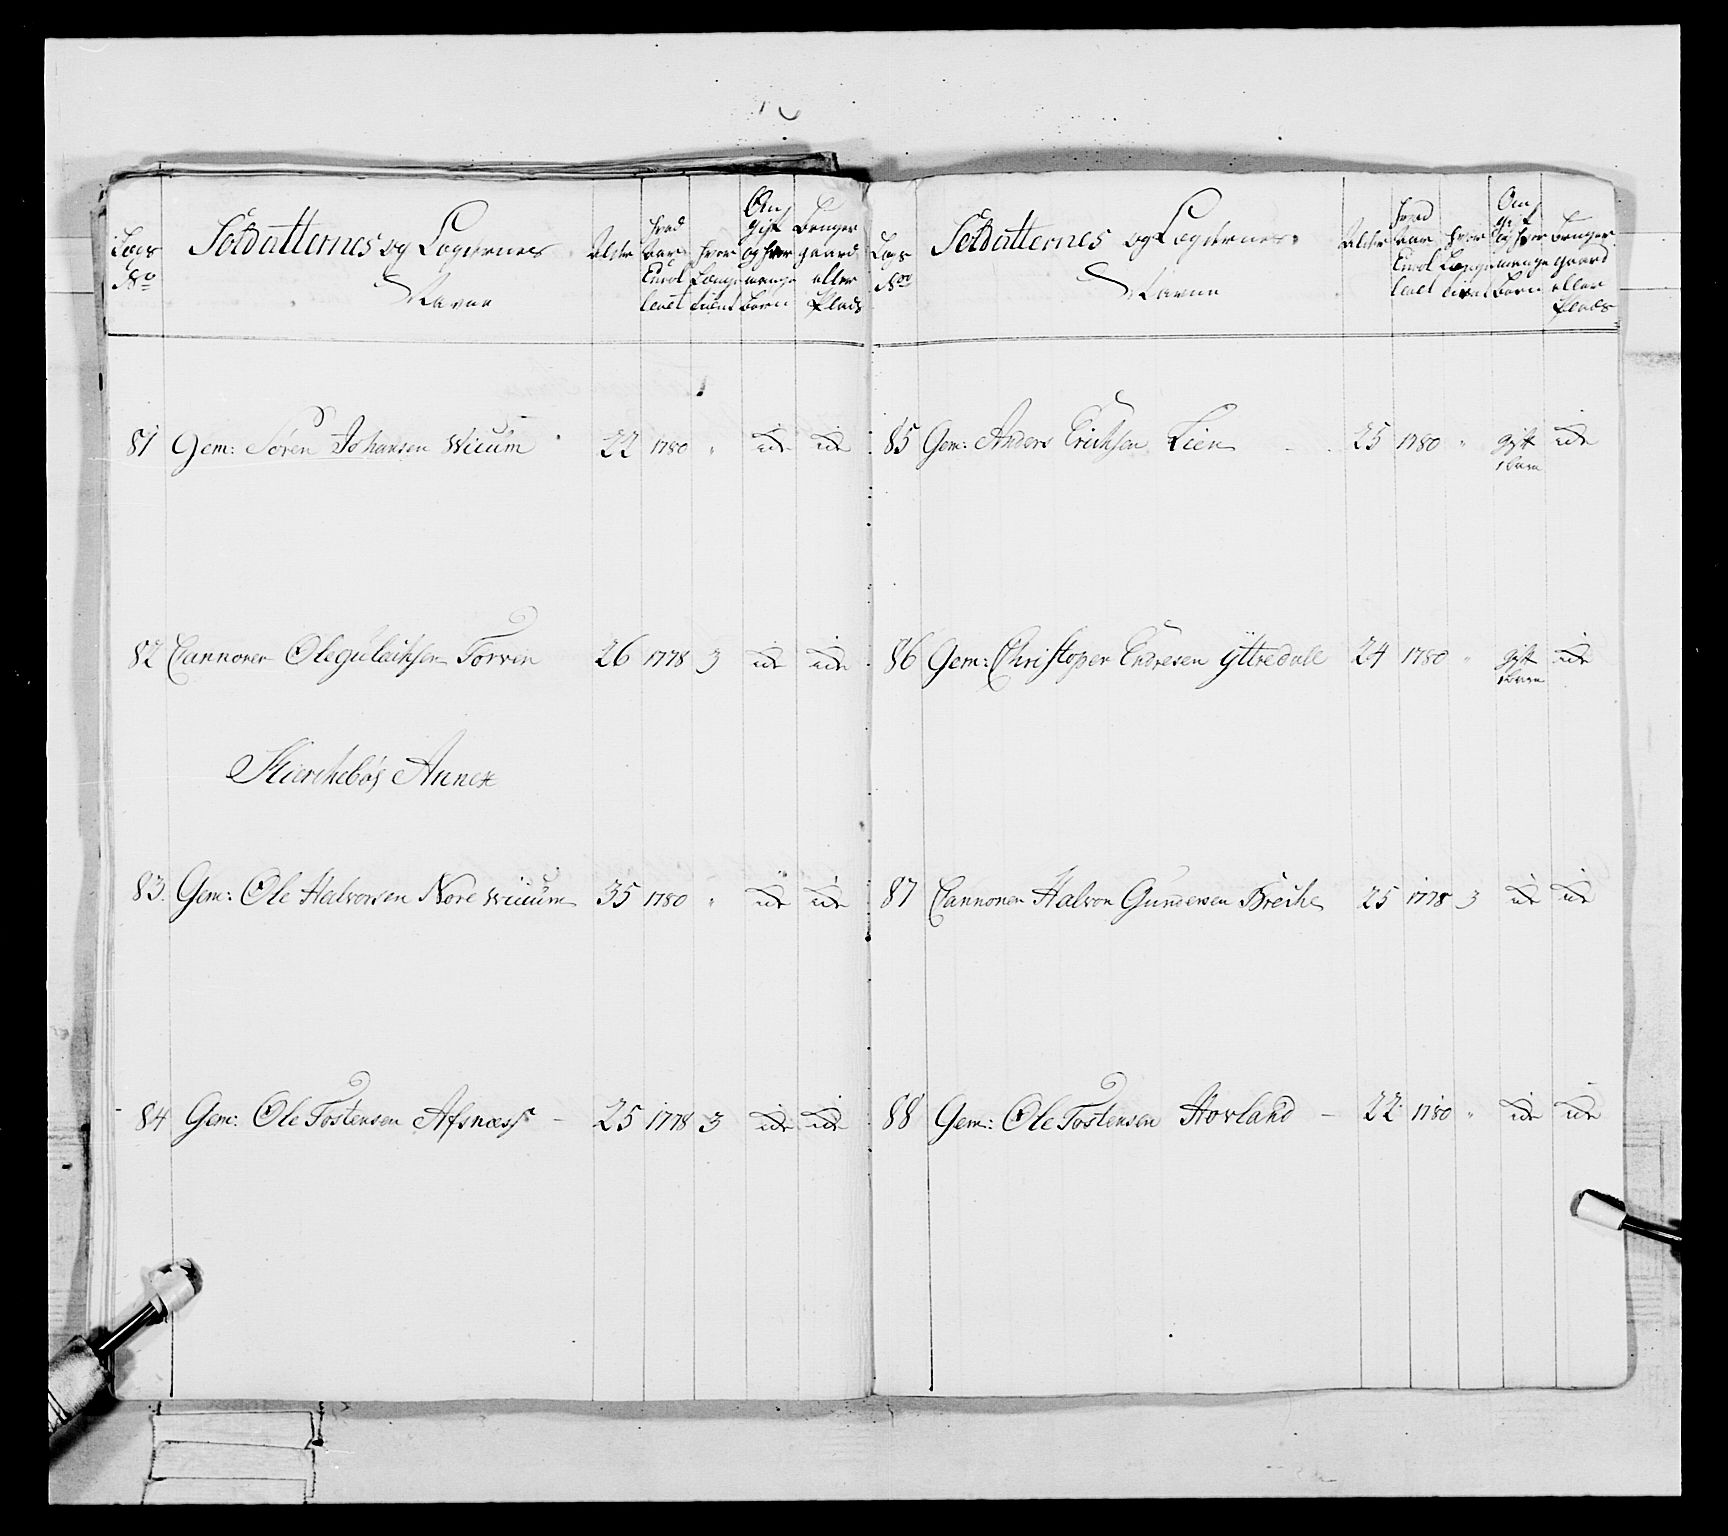 Lægs No
Soldatternes og Lægdernes Navne
Alder
hvad Aar Enrolleret
hvor Længe tient
Om gift og hvor mange Børn
Bruger gaard eller Plads
81 Gem: Sören Johansen Wicum 22 1780 " ide ide
82 Cannoner Ole Guleichsen Torven 26 1778 3 ide ide
Kierchebøs Annex
83. Gem: Ole Halvorsen Nore Wiicum 35 1780 " ide ide
84 Gem: Ole Tostensen Afsnæss 25 1778 3 ide ide
Lægs No
Soldatternes og Lægdernes Navne
Alder
hvad Aar Enrolleret
hvor Længe tient
Om gift og hvor mange Børn
Bruger gaard eller Plads
85 Gem: Anders Erichsen Lien 25 1780 " gift 1 barn ide
86 Gem: Christoper Endresen Ÿttredall 24 1780 " gift 1 barn ide
87 Cannoner Halvor Gundersen Breche 25 1778 3 ide ide
88 Gem: Ole Tostensen Hovland 22 1780 " ide ide